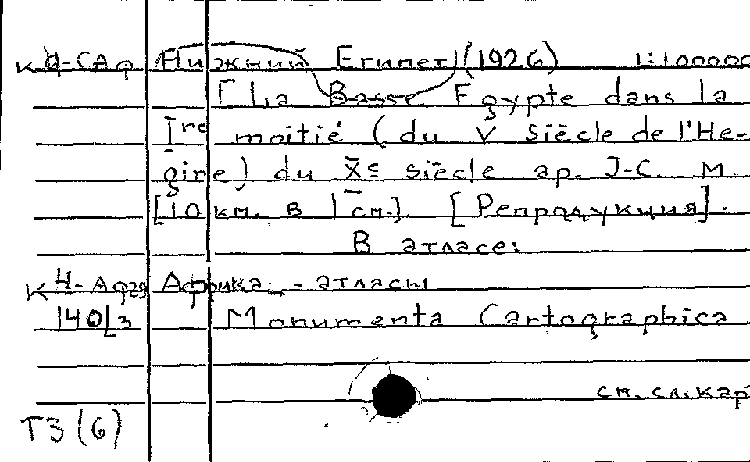 К Ч-САф Нижний Египет (1926) 1:100000
[La Basse Egypte dans la
Ire moitié (du V siècle de l'Hé-
gire) du Xe siècle ap. J-C. М.
[10 км. в 1 см.]. [Репродукция].
В атласе:
К Ч-Афр Африка - атласы
140/3 Monumenta Cartographica
см. сл. кар
Т3(6)